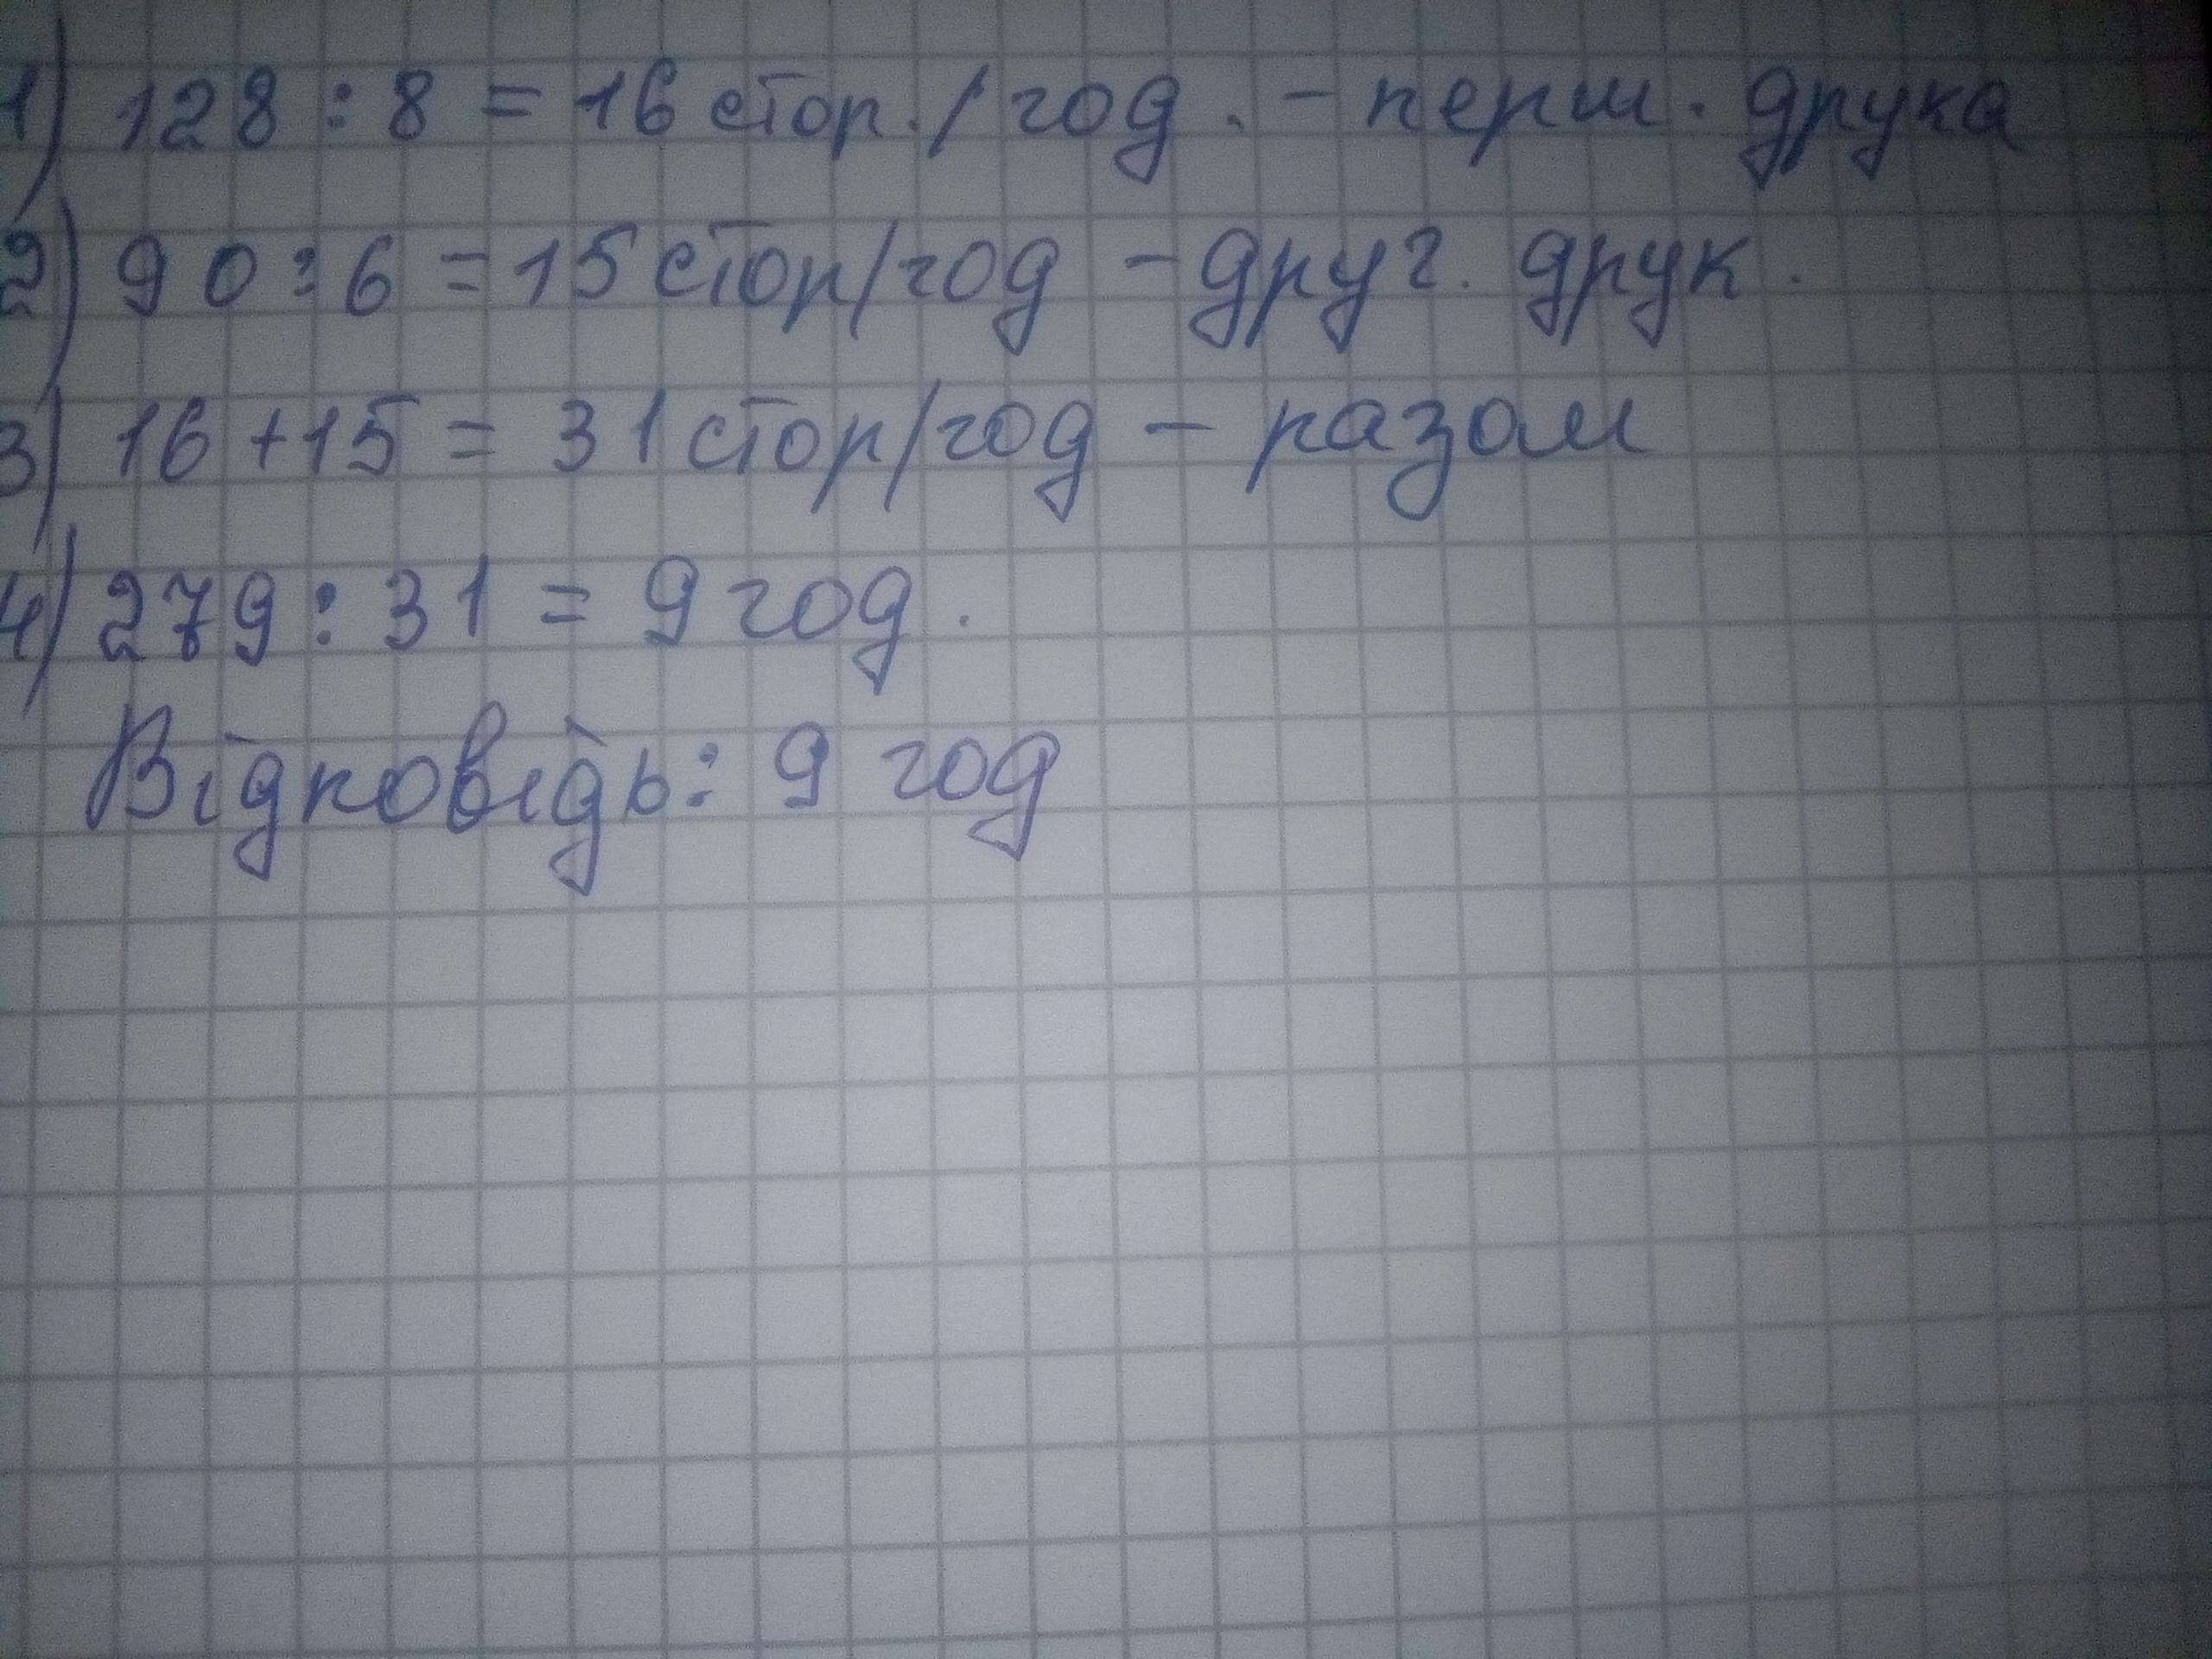 1) 128 : 8 = 16 стор. / год. - перш. друка
2) 90 : 6 = 15 стор/год - друг. друк.
3) 16 + 15 = 31 стор/год - разом
4) 279 : 31 = 9 год.
Відповідь: 9 год